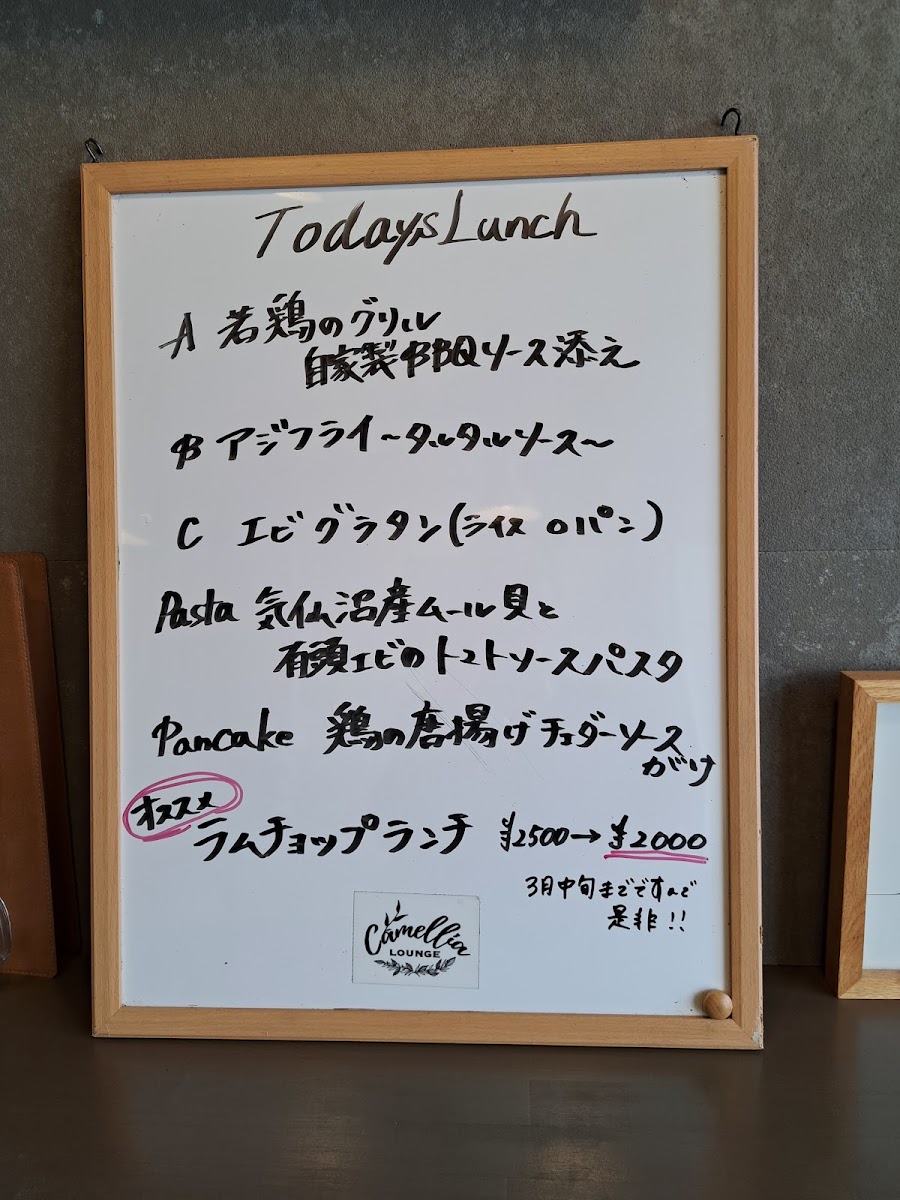 Today's Lunch
A 若鶏のグリル
自家製BBQソース添え
B アジフライ〜タルタルソース〜
C エビグラタン(ライス or パン)
Pasta 気仙沼産ムール貝と
有頭エビのトマトソースパスタ
Pancake 鶏の唐揚げチェダーソース
がけ
オススメ
ラムチョップランチ ¥2500→¥2000
3月中旬までですので
是非!!
Camellia
LOUNGE